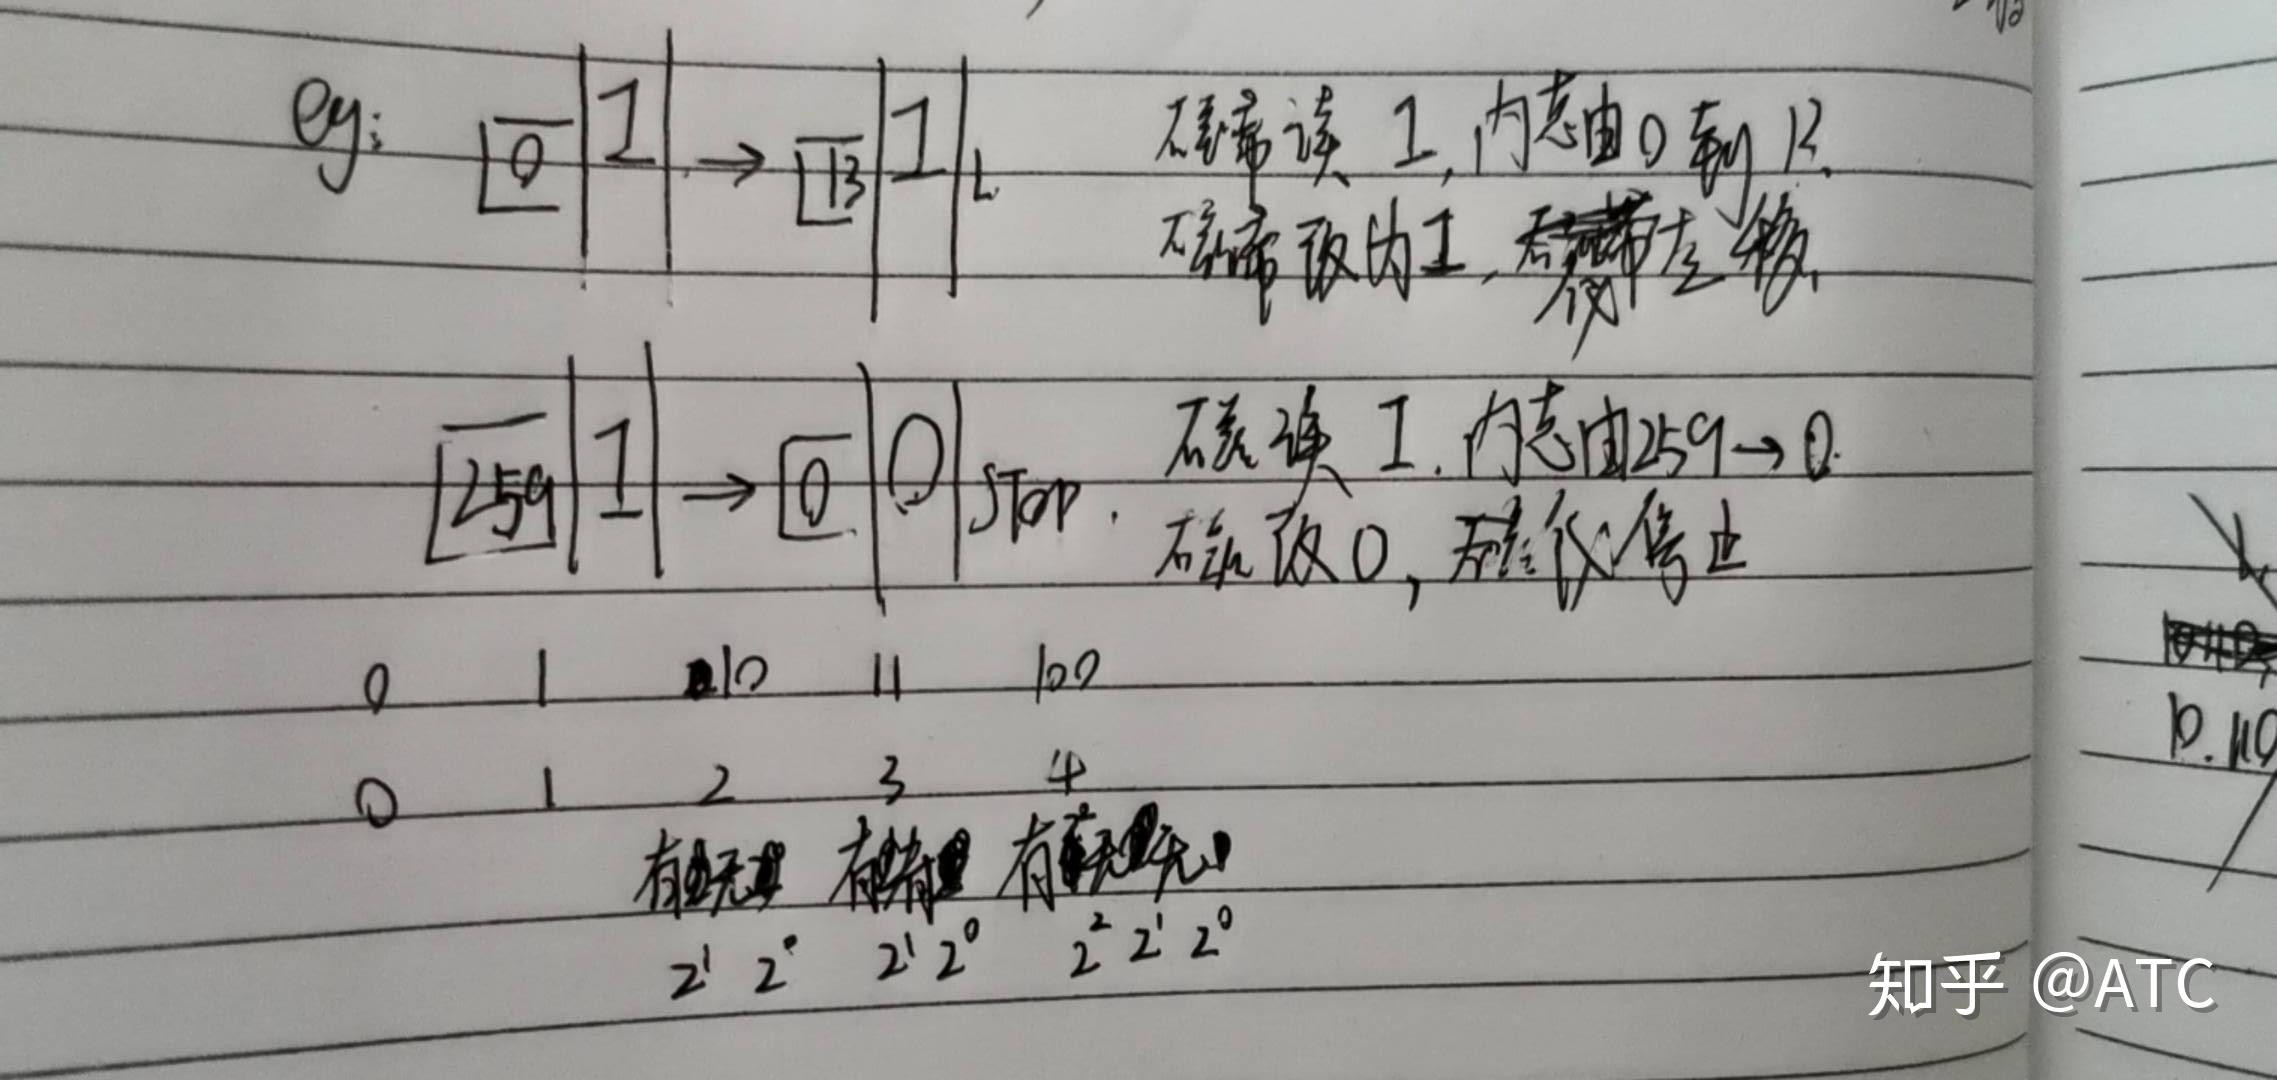 eg: 0 1 → 13 1 L 磁带读 1, 内态由0到13.
磁带改为1, 仪左移.
259 1 → 0 0 STOP. 磁读 1. 内态由259→0.
磁改0, 磁仪停止
0 1 10 11 100
0 1 2 3 4
有无 有有 有无无
2¹ 2⁰ 2¹ 2⁰ 2² 2¹ 2⁰
10.110
知乎 @ATC